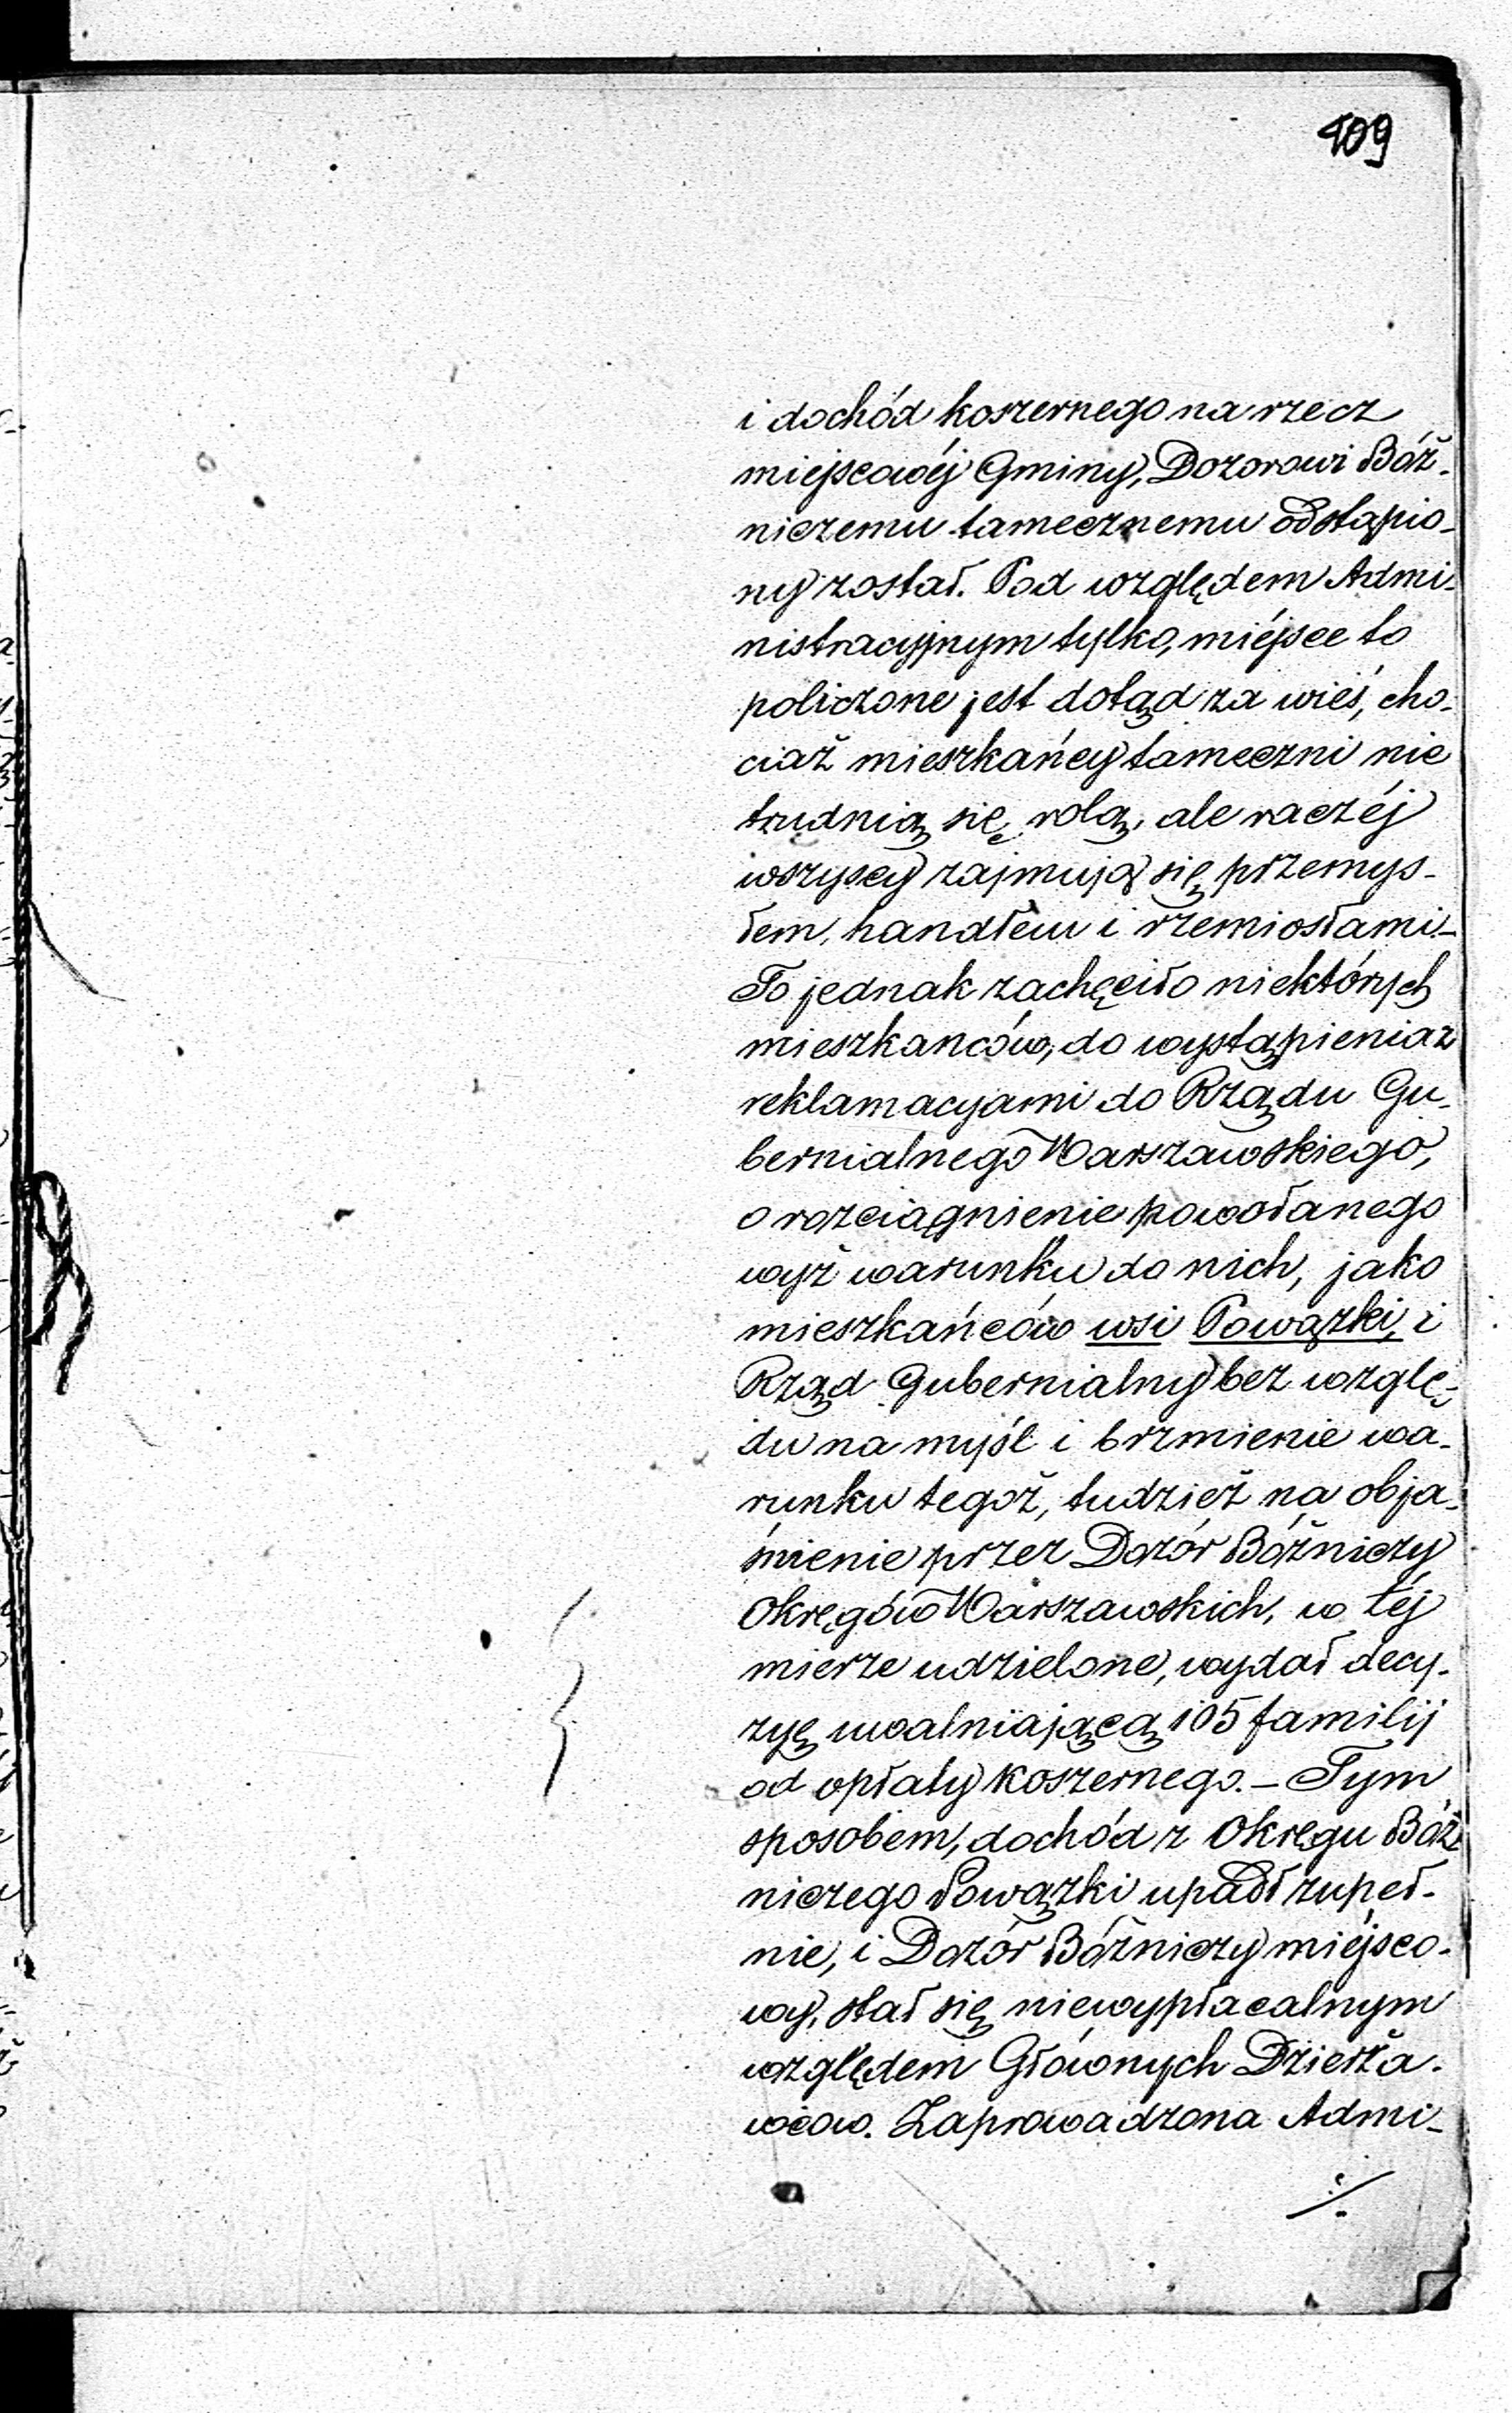 109
i dochód koszernego na rzecz
miejscowéj Gminy, Dozorowi Bóż-
niczemu tamecznemu odstąpio-
ny został. Pod względem Admi-
nistracyjnym tylko, miéjsce to
policzone jest dotąd za wieś, cho-
ciaż mieszkańcy tameczni nie
trudnią się rolą, ale raczéj
wszyscy zajmują się przemys-
łem, handlem i rzemiosłami.-
To jednak zachęciło niektórych
mieszkanców, do wystąpienia z
reklamacyami do Rządu Gu-
bernialnego Warszawskiego,
o rozciągnienie powołanego
wyż warunku do nich, jako
mieszkańców wsi Powązki, i
Rząd Gubernialny bez wzglę-
du na myśl i brzmienie wa-
runku tegoż, tudzież na obja-
śnienie przez Dozór Bóżniczy
Okręgów Warszawskich, w téj
mierze udzielone, wydał decy-
zyę uwalniającą 105 familij
od opłaty koszernego. - Tym
sposobem, dochód z Okręgu Bóż-
niczego Powązki upadł zupeł-
nie, i Dozór Bóżniczy miéjsco-
wy, stał się niewypłacalnym
względem Głównych Dzierża-
wcow. Zaprowadzona Admi-